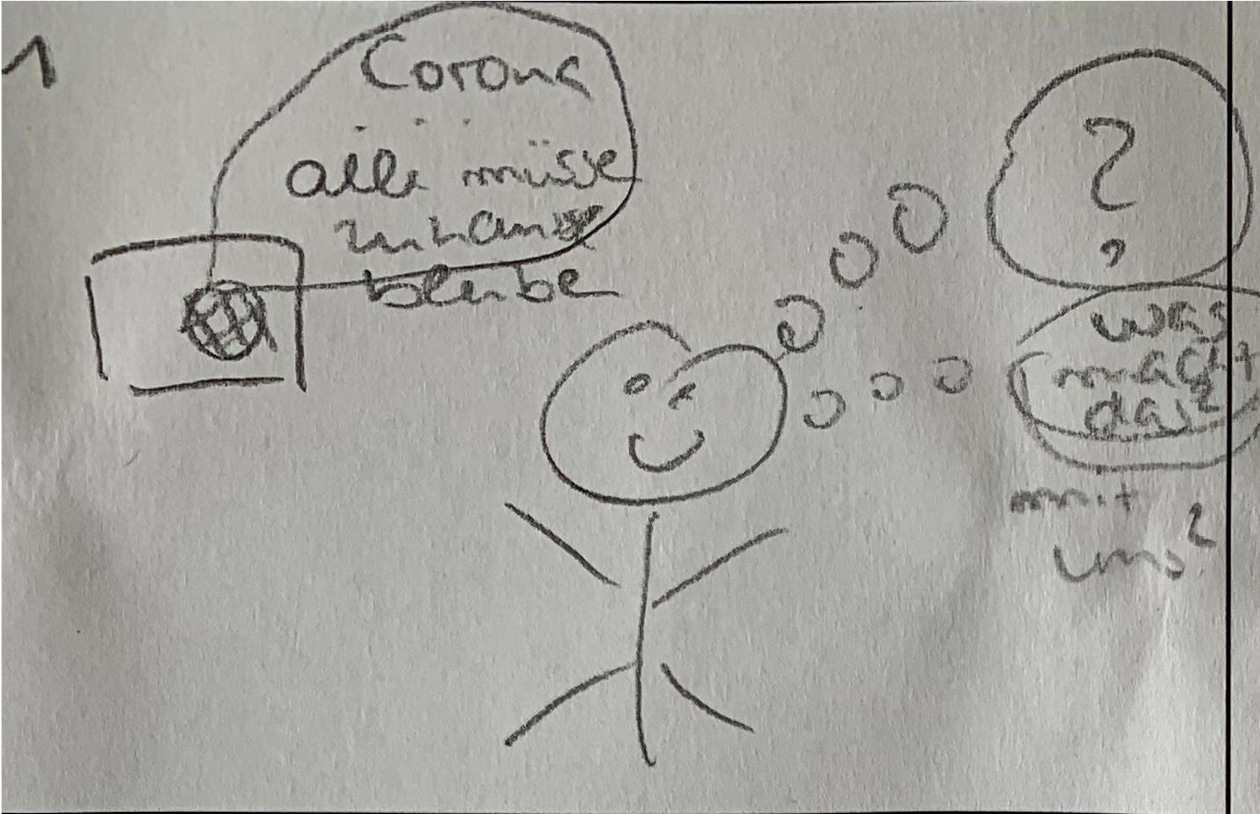 1
Corona
...
alle müsse
zuhause
bleibe
?
was
macht
das
mit
uns?